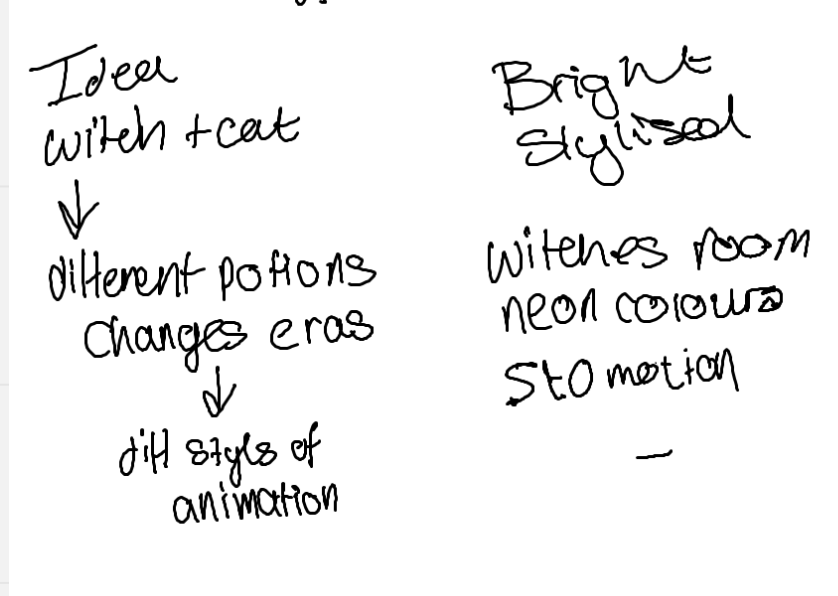 Idea
witch + cat
↓
different potions
changes eras
↓
diff styls of
animation
Bright
Stylised
witches room
neon colours
Sto motion
—